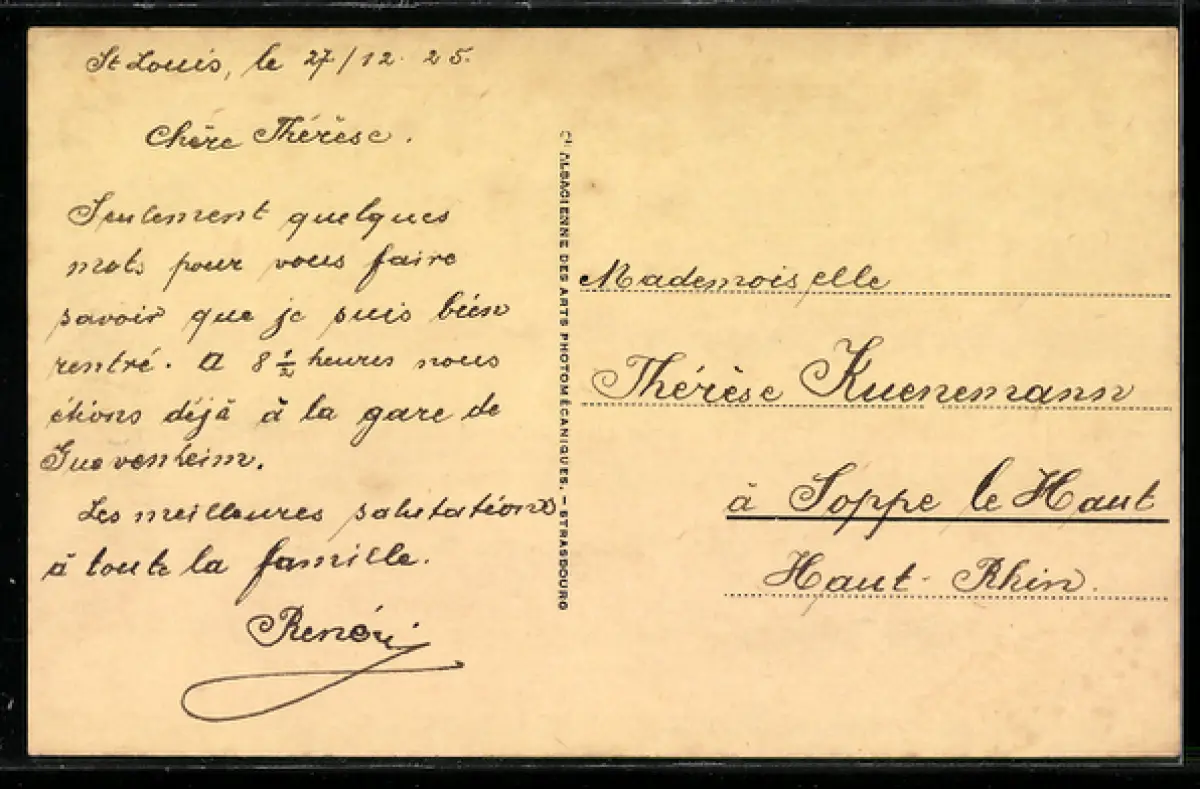 St Louis, le 27/12. 25.
Chère Thérèse.
Seulement quelques
mots pour vous faire
savoir que je suis bien
rentré. A 8 ½ heures nous
étions déjà à la gare de
Guevenheim.
Les meilleures salutations
à toute la famille.
Cie ALSACIENNE DES ARTS PHOTOMÉCANIQUES. – STRASBOURG
Mademoiselle
Thérèse Kuenemann
à Soppe le Haut
Haut-Rhin.